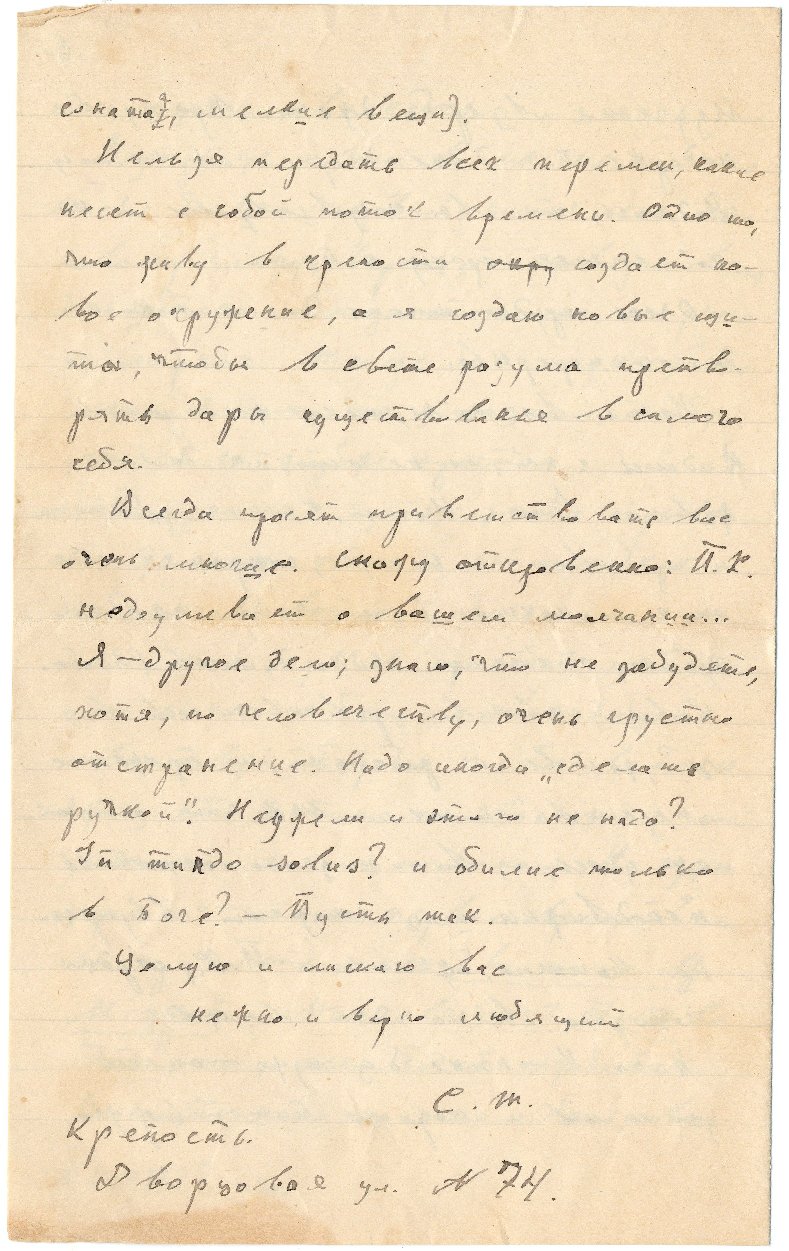 соната, мелкие вещи].
Нельзя передать всех перемен, какие
несет с собой поток времени. Одно то,
что живу в крепости окру создает но-
вое окружение, а я создаю новые щи-
ты, чтобы в свете разума претво-
рять дары существованья в самого
себя.
Всегда просят приветствовать вас
очень многие. Скажу откровенно: П. К.
недоумевает о вашем молчании...
Я — другое дело; знаю, что не забудете,
хотя, по человечеству, очень грустно
отстранение. Надо иногда „сделать
ручкой". Неужели и этого не надо?
In mundo solus? и обилие только
в Боге? — Пусть так.
Целую и ласкаю вас
нежно и верно любящий
С. т.
Крепость.
Дворцовая ул. N 74.